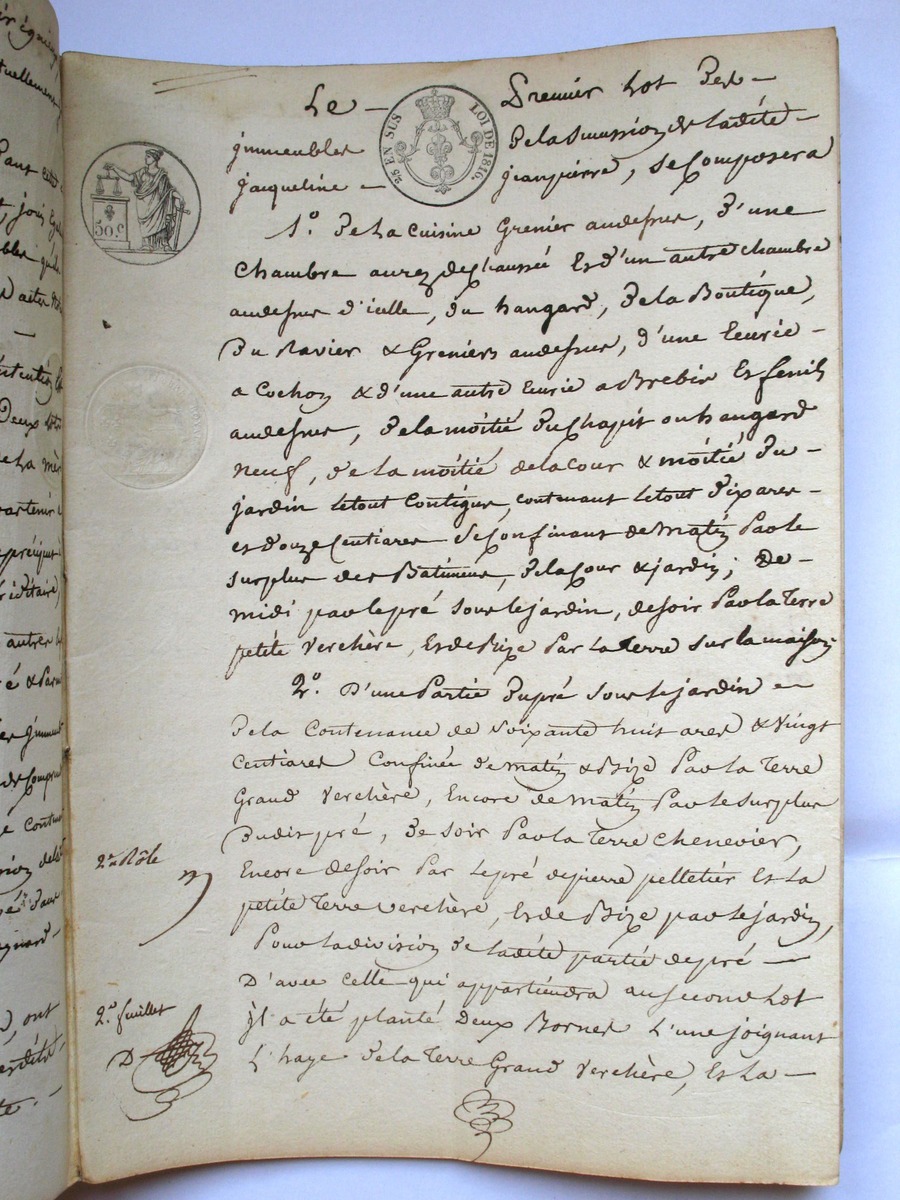 Le — Premier Lot Des —
immeubles Dela Succession de Ladite —
jacqueline — jeanpierre, se Composera
25 EN SUS LOI DE 1816.
50.c
1.o De La Cuisine Grenier audessus, D'une
Chambre aurez dechaussée Et d'un autre chambre
audessus d'icelle, du hangard, De la Boutique,
Du Ravier & Greniers audessus, d'une Ecurie —
a Cochon & d'une autre Ecurie a Brebis Et fenil
audessus, de la moitié Du Chapit ou hangard
neuf, de la moitié de la Cour & moitié Du —
jardin le tout Contigue, contenant le tout dix ares —
et Douze Centiares se Confinant de matin Par le
surplus des Batiments, de la Cour & jardin; De —
midi par le pré sous le jardin, de soir Par la Terre
petite Verchère, Et de Bize Par la Terre sur la maison
2.o D'une Partie Du pré sous le jardin —
De la Contenance de Soixante huit ares & Vingt
Centiares Confinée de matin & Bize Par la Terre
Grand Verchère, Encore de matin Par le surplus
Dudit pré, De soir Par la Terre Chenevier,
Encore de soir Par le pré de pierre pelletier Et La
petite Terre Verchère, Et de Bize par le jardin,
Pour la division De ladite partie de pré —
D'avec Celle qui appartiendra au second Lot
il a été planté Deux Bornes L'une joignant
L'haye De la Terre Grand Verchère, Et La —
2.e Rôle
2.e feuillet
D